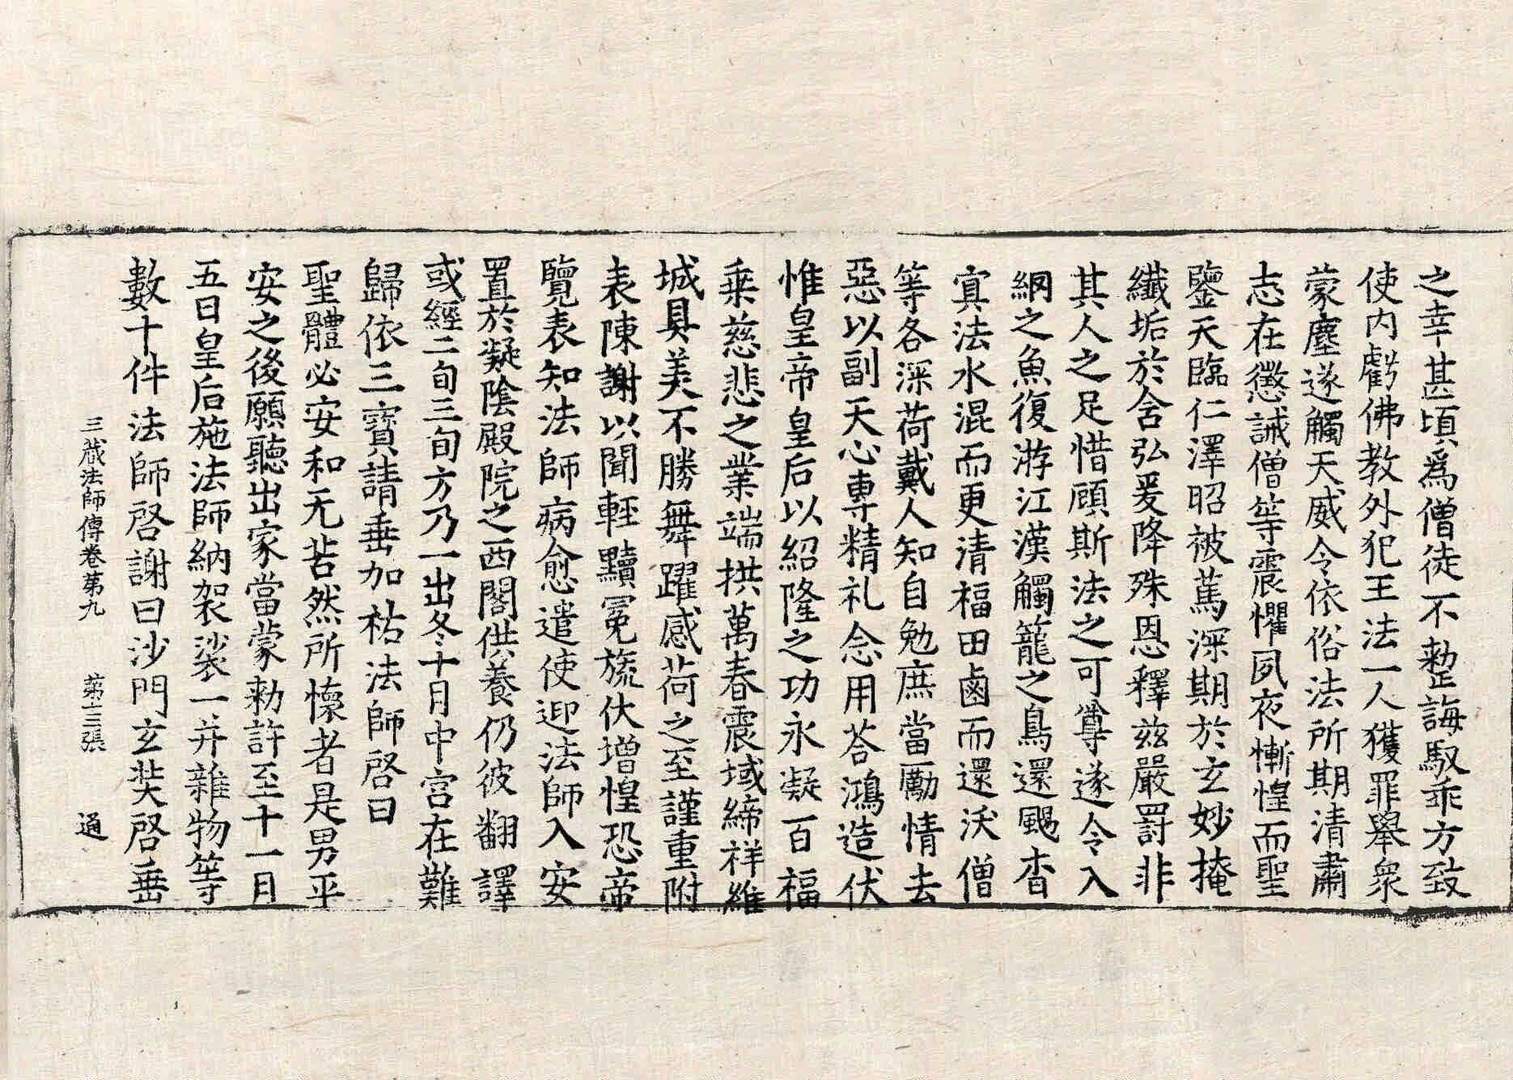 之幸甚頃為僧徒不整誨馭乖方致
使内虧佛教外犯王法一人獲罪舉衆
蒙塵遂觸天威令依俗法所期清肅
志在懲誡僧等震懼夙夜慚惶而聖
鑒天臨仁澤昭被篤深期於玄妙掩
纖垢於含弘爰降殊恩釋兹嚴罰非
其人之足惜顧斯法之可尊遂令入
網之魚復游江漢觸籠之鳥還颺杳
寘法水混而更清福田鹵而還沃僧
等各深荷戴人知自勉庶當勵情去
惡以副天心專精礼念用荅鴻造伏
惟皇帝皇后以紹隆之功永凝百福
乗慈悲之業端拱萬春震域締祥維
城具美不勝舞躍感荷之至謹重附
表陳謝以聞輕黷冕旒伏增惶恐帝
覽表知法師病愈遣使迎法師入安
置於凝陰殿院之西閣供養仍彼翻譯
或經二旬三旬方乃一出冬十月中宫在難
歸依三寶請垂加祐法師啓曰
聖體必安和无苦然所懷者是男平
安之後願聽出家當蒙勑許至十一月
五日皇后施法師納袈裟一并雜物等
數十件法師啓謝曰沙門玄奘啓垂
三藏法師傳卷第九 第十三張 通